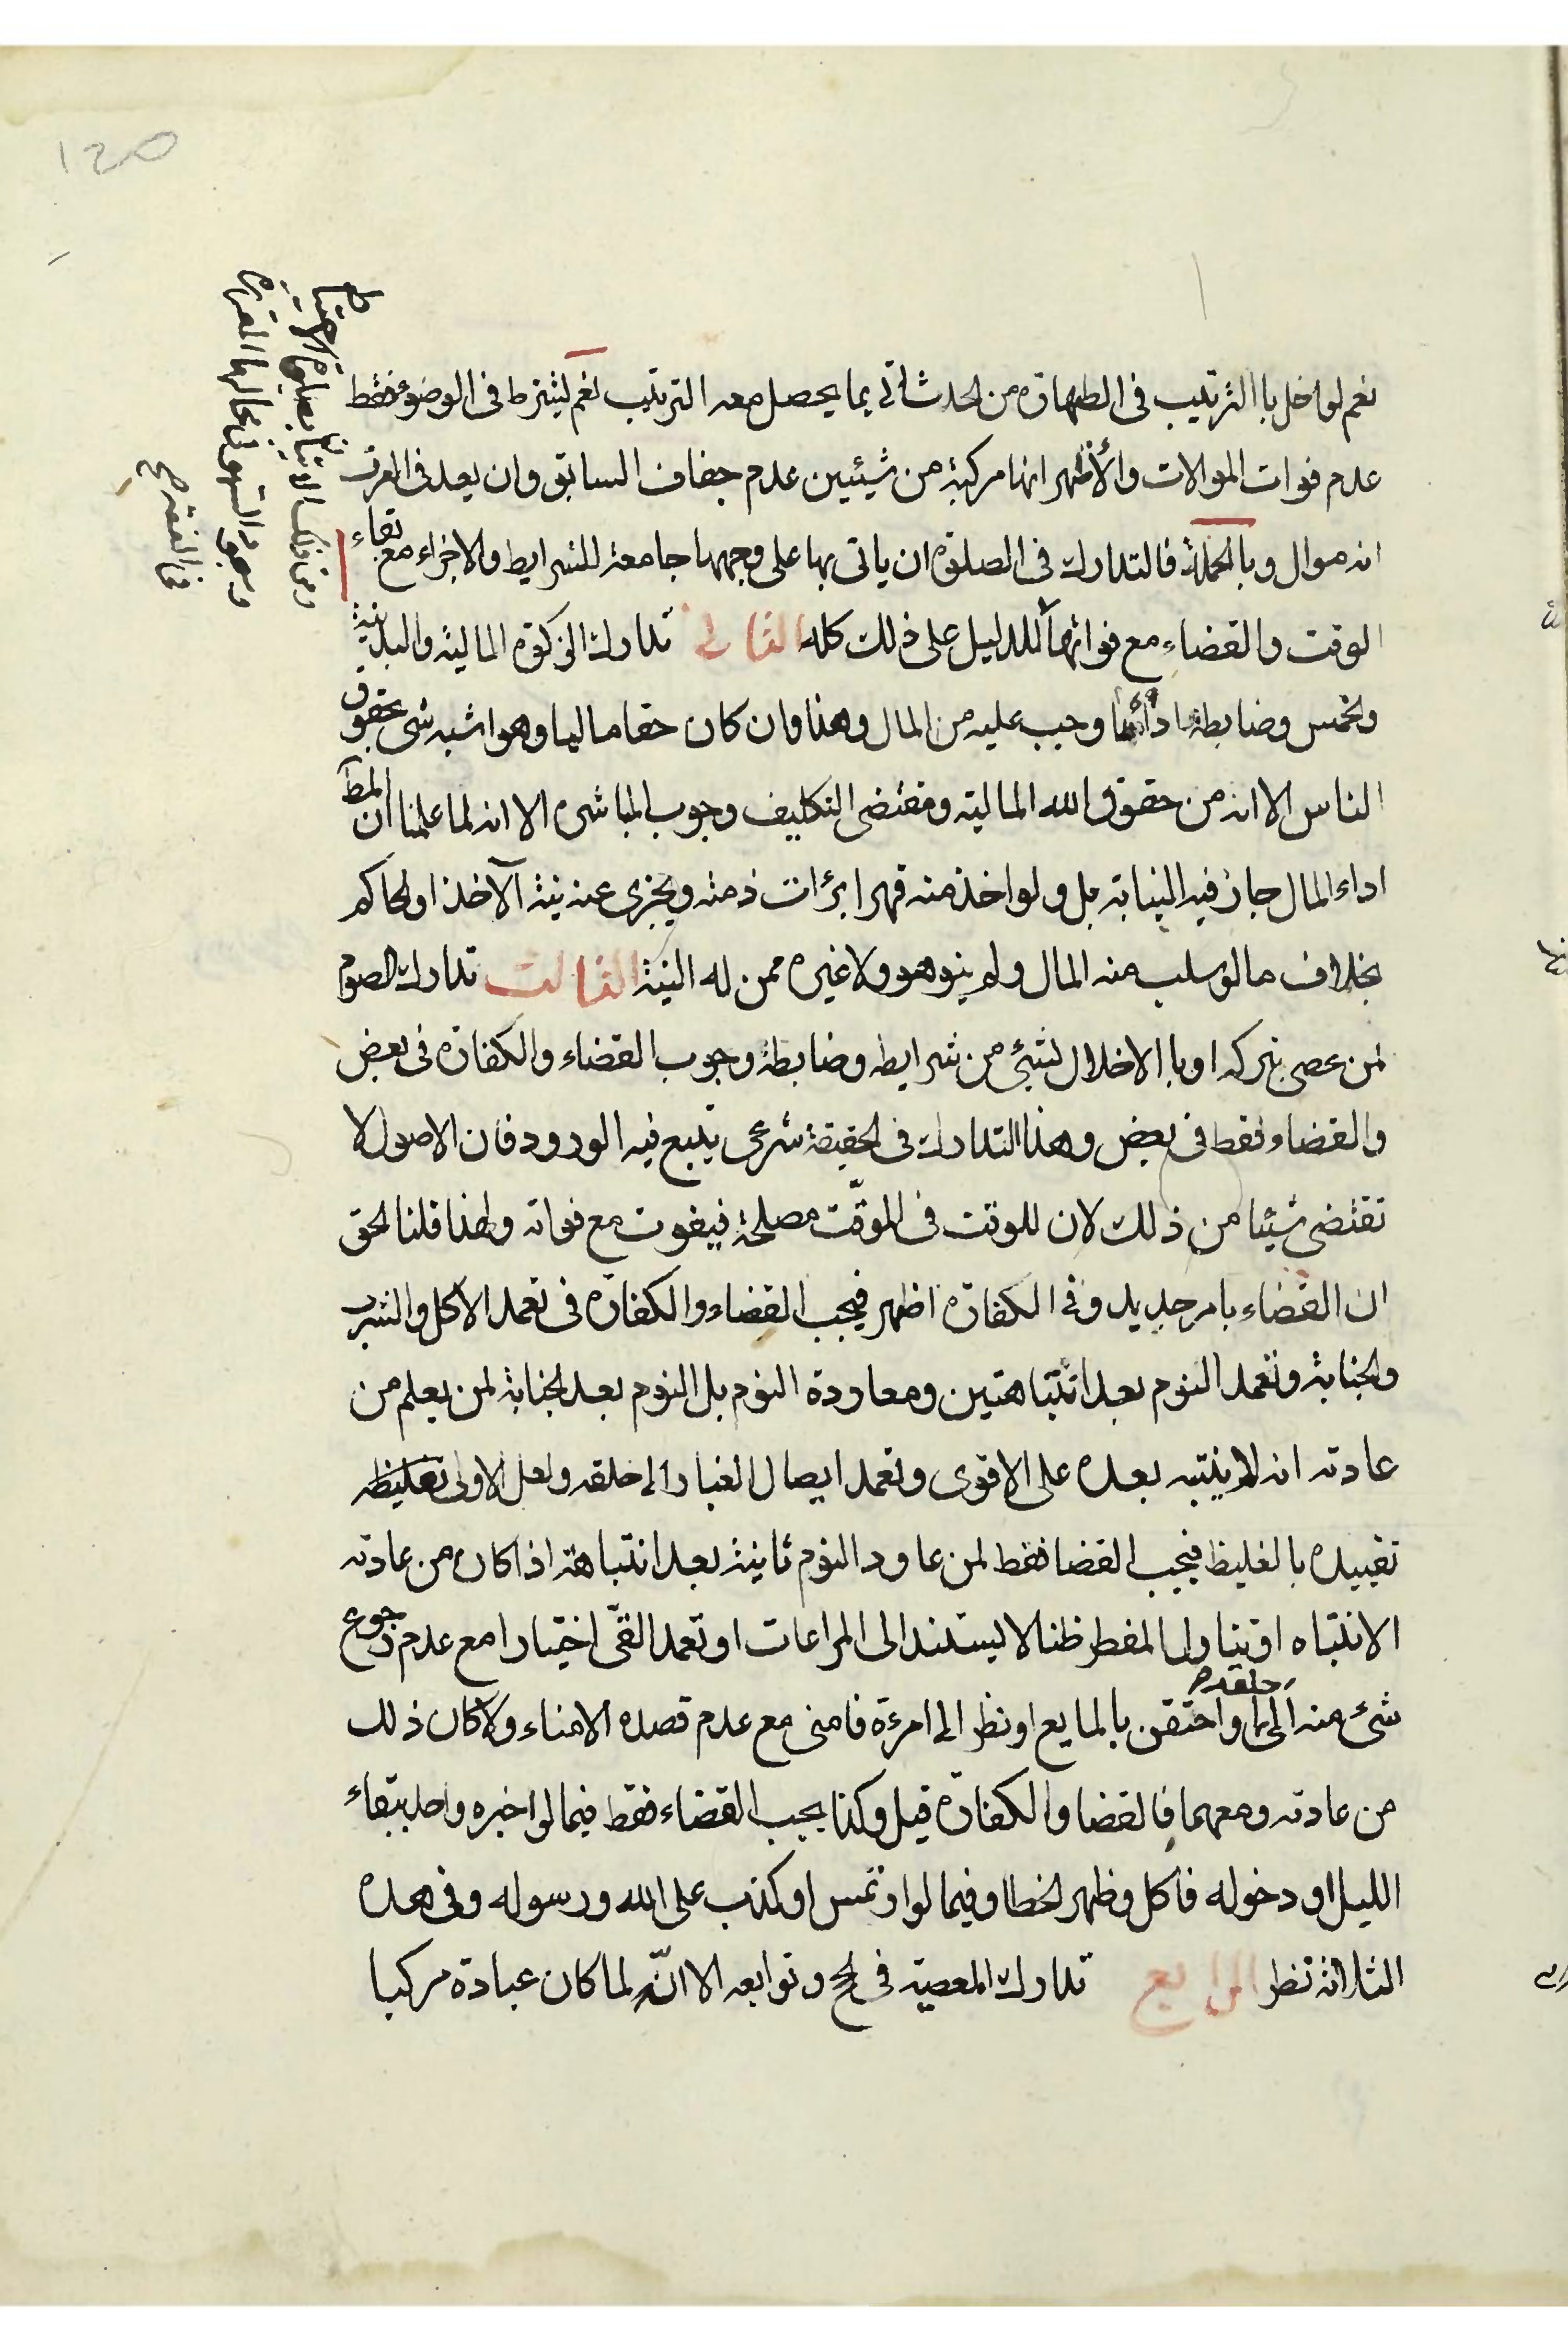 120
نعم لو اخل باالترتيب فى الطهارة من الحدث اتى بما يحصل معه الترتيب نعم يشترط فى الوضوء فقط
عدم فوات الموالات والأظهر انها مركبة من شيئين عدم جفاف السابق وان يعد فى العرف
انه موال وبالجملة فالتدارك فى الصلوة ان ياتى بها على وجهها جامعة للشرايط والاجزاء مع بقاء
الوقت والقضاء مع فواتهما للدليل على ذلك كله الثانى تدارك الزكوة المالية والبدنية
والخمس وضابطة اداء ما وجب عليه من المال وهذا وان كان حقا ماليا وهو اشبه شى بحقوق
الناس الا انه من حقوق الله المالية ومقتضى التكليف وجوب المباشرة الا انه لما علمنا ان المط
اداء المال جاز فيه النيابة بل ولو اخذ منه قهرا برئت ذمته ويجزى عنه نية الآخذ او الحاكم
بخلاف ما لو سلب منه المال ولم ينو هو ولا غيره ممن له النية الثالث تدارك الصوم
لمن عصى بتركه او باالاخلال بشيئ من شرايطه وضابطة وجوب القضاء والكفارة فى بعض
والقضاء فقط فى بعض وهذا التدارك فى الحقيقة شرعى يتبع فيه الورود فان الاصول لا
تقتضى شيئا من ذلك لان للوقت فى الموقّت مصلحة فيفوت مع فواته ولهذا قلنا الحق
ان القضاء بامر جديد وفى الكفارة اظهر فيجب القضاء والكفارة فى تعمد الاكل والشرب
والجنابة وتعمد النوم بعد انتباهتين ومعاودة النوم بل النوم بعد الجنابة لمن يعلم من
عادته انه لا ينتبه بعده على الاقوى وتعمد ايصال الغبار الى حلقه ولعل الاولى تغليظه
تقييده بالغليظ فيجب القضا فقط لمن عاود النوم ثانية بعد انتباهة اذا كان من عادته
الانتباه او بتناول المفطر ظنا لا يستند الى المراعات او تعمد القئ اختيارا مع عدم رجوع
شئ منه الى حلقه او احتقن بالمايع او نظر الى امرءة فامنى مع عدم قصده الامناء ولا كان ذلك
من عادته ومعهما فالقضا والكفارة قيل وكذا يجب القضاء فقط فيما لو اخبره واحد ببقاء
الليل او دخوله فاكل وظهر الخطا وفيما لو ارتمس او كذب على الله ورسوله وفى هذه
الثلاثة نظر الرابع تدارك المعصية فى الحج وتوابعه الا انّه لما كان عبادة مركبا